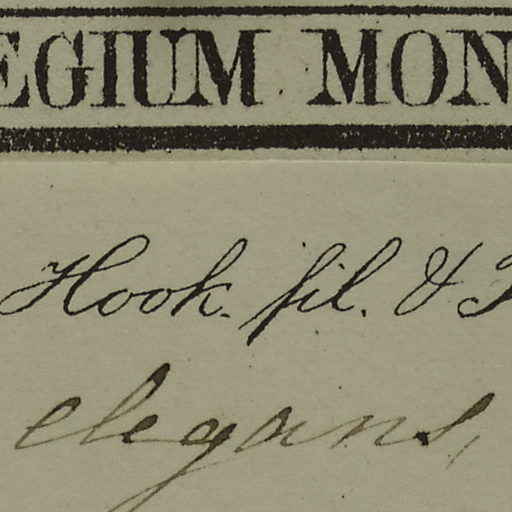 EGIUM MON
Hook. fil. & T
elegans,